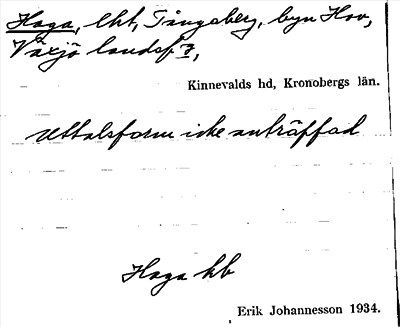 Haga, lht, Tångaberg, byn Hov,
Växjö landsf ?,
Kinnevalds hd, Kronobergs län.
Uttalsform icke anträffad
Haga hb
Erik Johannesson 1934.